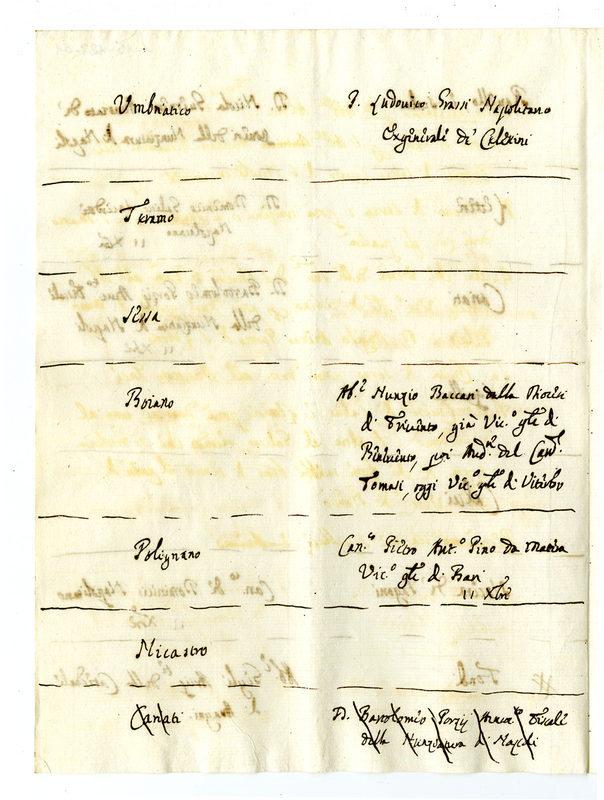 Umbriatico
P. Ludovico Grassi Napolitano
Exgenerale de' Celestini
Teramo
Sessa
Boiano
Ab.e Nunzio Baccari della Diocesi
di Trivento, già Vic.o gle di
Benevento, poi Aud.r del Card.l
Tomasi, oggi Vic.o gle di Viterbo
Polignano
Can.co Pietro Ant.o Pino da Matera
Vic.o gle di Bari
11 Xbre
Nicastro
Cariati
D. Bartolomeo Porzii Avvoc.to Fiscale
della Nunziatura di Napoli